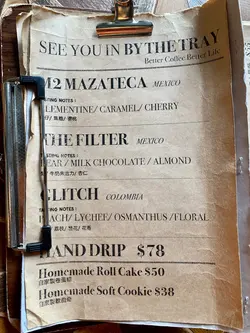 SEE YOU IN BY THE TRAY
Better Coffee Better Life
M2 MAZATECA MEXICO
TASTING NOTES :
CLEMENTINE / CARAMEL / CHERRY
THE FILTER MEXICO
TASTING NOTES :
PEAR / MILK CHOCOLATE / ALMOND
GLITCH COLOMBIA
TASTING NOTES :
PEACH / LYCHEE / OSMANTHUS / FLORAL
HAND DRIP $78
Homemade Roll Cake $50
自家製卷蛋糕
Homemade Soft Cookie $38
自家製軟曲奇